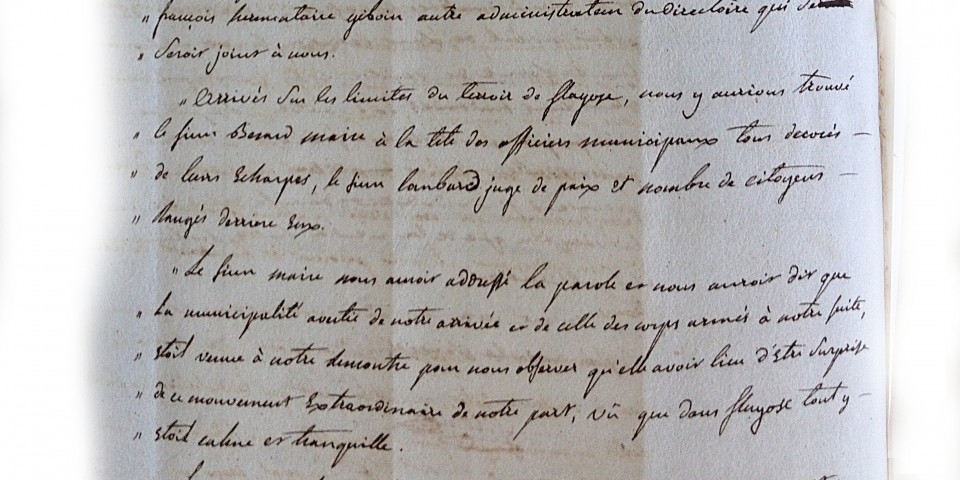 " françois hermentaire giboin autre administrateur du directoire qui
" seroit joint à nous.
" Arrivés sur les limites du terroir de flayose, nous y aurions trouvé
" le sieur Berard maire à la tête des officiers municipaux tous décorés —
" de leurs Echarpes, le sieur lombard juge de paix et nombre de citoyens —
" Rangés derriere Eux.
" Le sieur maire nous auroit addressé la parole et nous auroit dit que
" La municipalité avertie de notre arrivée et de celle des corps armés à notre suite,
" Etoit venue à notre rencontre pour nous observer qu'elle avoit lieu d'Etre surprise
" de ce mouvement Extraordinaire de notre part, vû que dans flayose tout y —
" Etoit calme et tranquille.